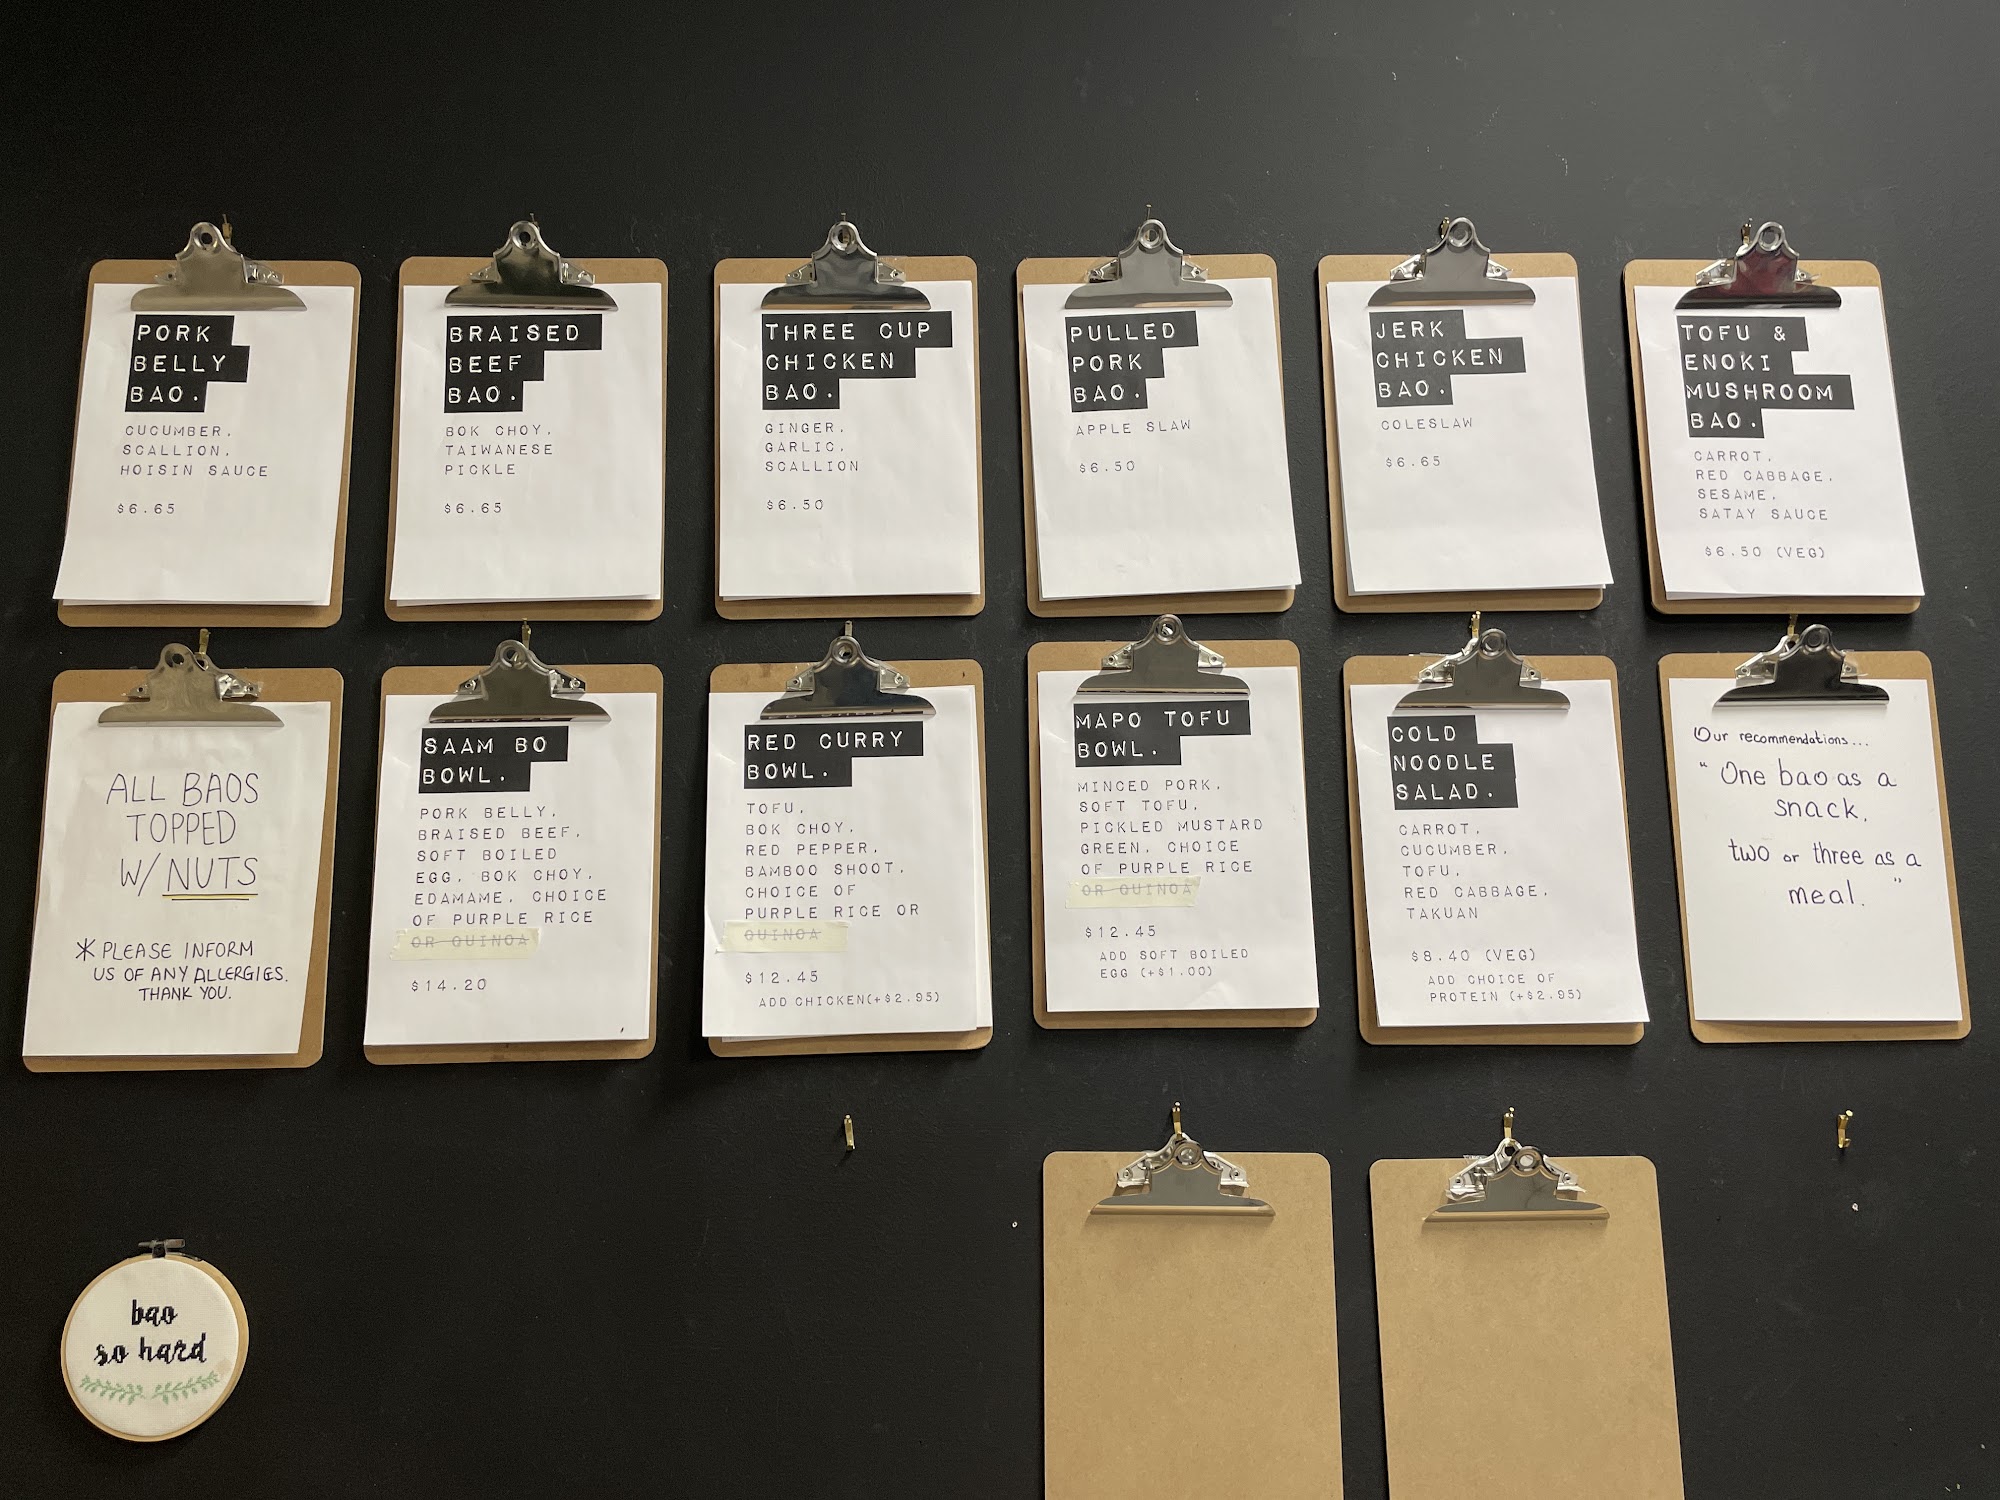 PORK
BELLY
BAO.
CUCUMBER,
SCALLION,
HOISIN SAUCE
$6.65
BRAISED
BEEF
BAO.
BOK CHOY,
TAIWANESE
PICKLE
$6.65
THREE CUP
CHICKEN
BAO.
GINGER,
GARLIC,
SCALLION
$6.50
PULLED
PORK
BAO.
APPLE SLAW
$6.50
JERK
CHICKEN
BAO.
COLESLAW
$6.65
TOFU &
ENOKI
MUSHROOM
BAO.
CARROT,
RED CABBAGE,
SESAME,
SATAY SAUCE
$6.50 (VEG)
ALL BAOS
TOPPED
W/ NUTS
* PLEASE INFORM
US OF ANY ALLERGIES.
THANK YOU.
SAAM BO
BOWL.
PORK BELLY,
BRAISED BEEF,
SOFT BOILED
EGG, BOK CHOY,
EDAMAME, CHOICE
OF PURPLE RICE
OR QUINOA
$14.20
RED CURRY
BOWL.
TOFU,
BOK CHOY,
RED PEPPER,
BAMBOO SHOOT,
CHOICE OF
PURPLE RICE OR
QUINOA
$12.45
ADD CHICKEN(+$2.95)
MAPO TOFU
BOWL.
MINCED PORK,
SOFT TOFU,
PICKLED MUSTARD
GREEN, CHOICE
OF PURPLE RICE
OR QUINOA
$12.45
ADD SOFT BOILED
EGG (+$1.00)
COLD
NOODLE
SALAD.
CARROT,
CUCUMBER,
TOFU,
RED CABBAGE,
TAKUAN
$8.40 (VEG)
ADD CHOICE OF
PROTEIN (+$2.95)
Our recommendations...
"One bao as a
snack,
two or three as a
meal."
bao
so hard